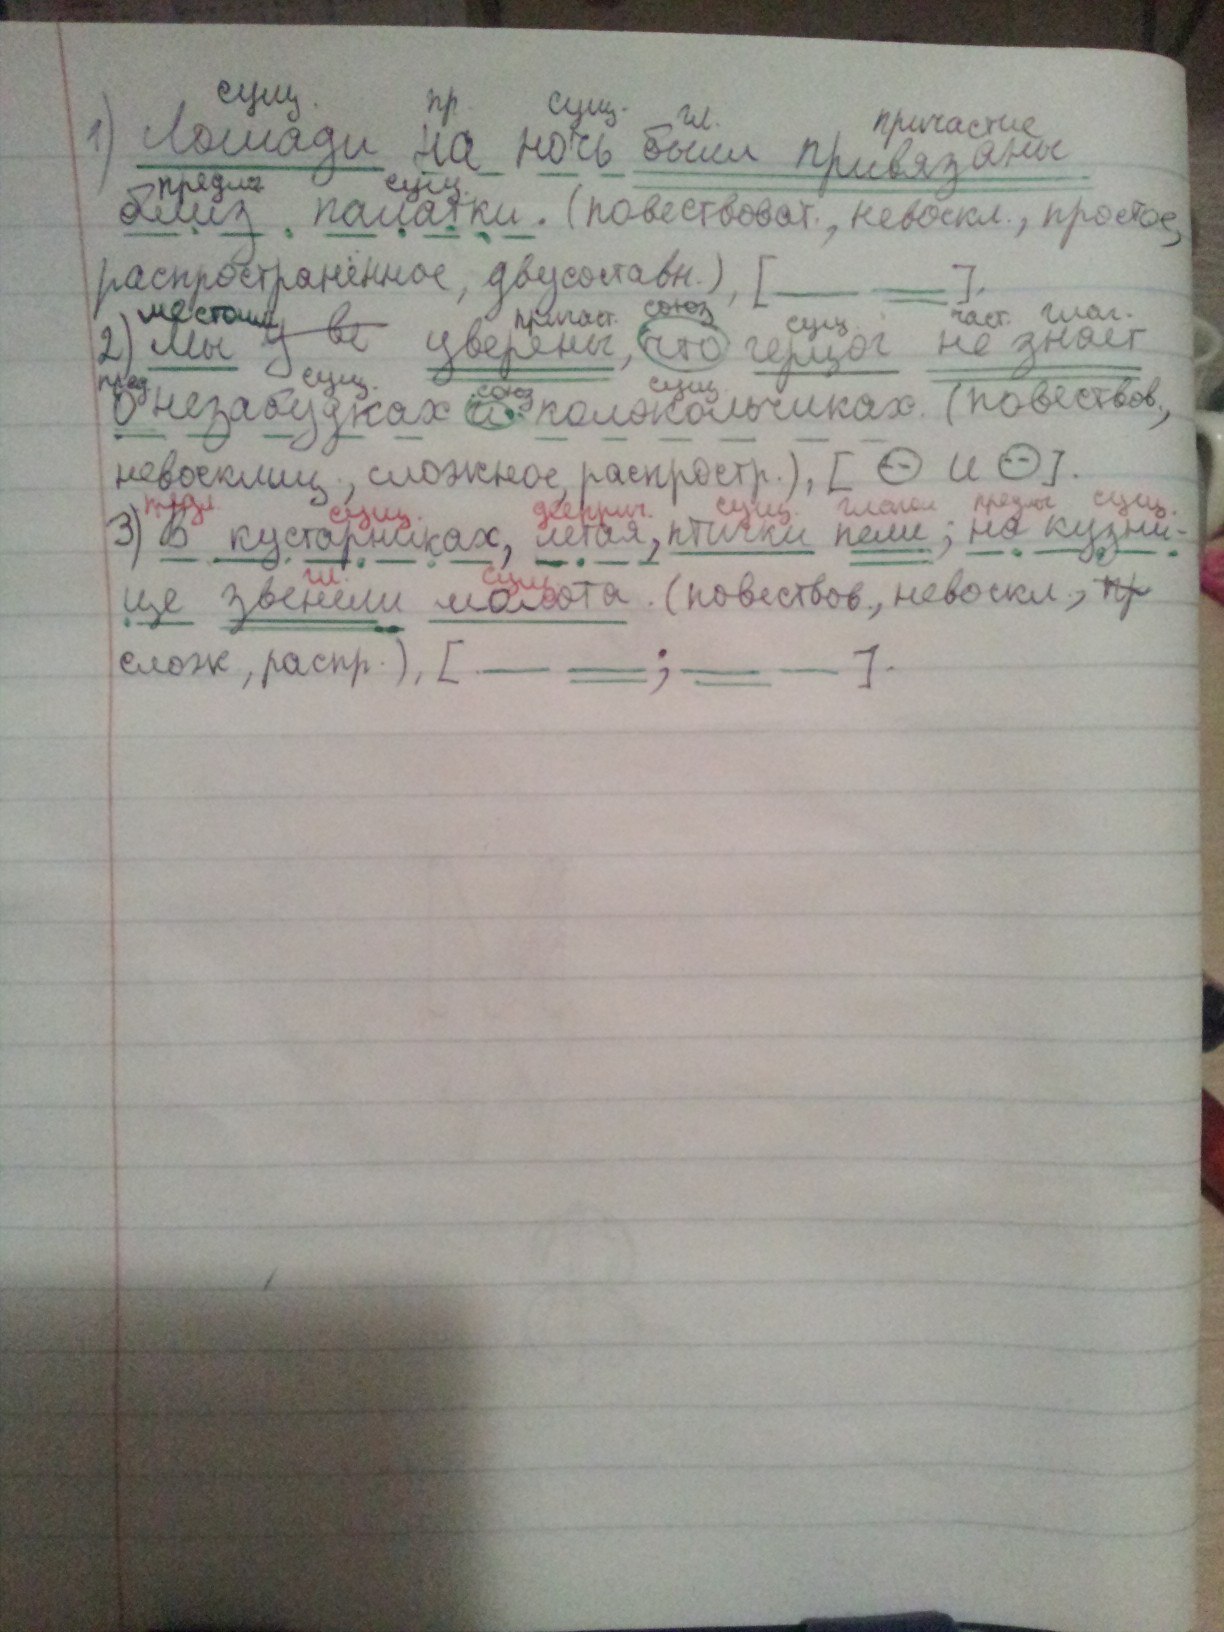 сущ. пр. сущ. гл. причастие
1) Лошади на ночь были привязаны
предлог сущ.
близ палатки. (повествоват., невоскл., простое,
распространённое, двусоставн.), [ ].
местоим причаст. союз сущ част. глаг.
2) Мы у ве уверены, что герцог не знает
пред. сущ. союз сущ.
о незабудках и колокольчиках. (повествов.,
невосклиц., сложное, распростр.), [ и ].
предл сущ. дееприч. сущ. глагол предлог сущ.
3) В кустарниках, летая, птички пели; на кузни-
гл. сущ.
це звенели молота. (повествов., невоскл., пр
слож, распр.), [ ; ].